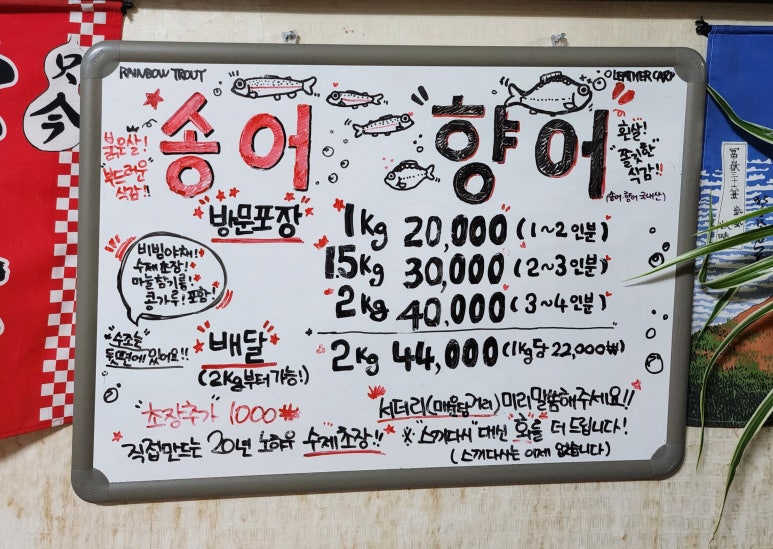 RAINBOW TROUT
LEATHER CARP
송어 향어
붉은살!
부드러운
식감!!
흰살!
"쫄깃한"
식감!!
(송어 향어 국내산)
방문포장
1kg 20,000 (1~2인분)
1.5kg 30,000 (2~3인분)
2kg 40,000 (3~4인분)
비빔야채!
수제초장!
마늘참기름!
콩가루! 포함!
"수조는
뒷면에 있어요!!
배달
(2kg부터 가능!)
2kg 44,000 (1kg당 22,000₩)
"초장추가" 1000₩
서더리(매운탕거리) 미리 말씀해주세요!!
직접만드는 20년 노하우 수제초장!!
※ "스끼다시" 대신 회를 더 드립니다!
(스끼다시는 이제 없습니다)
只
今